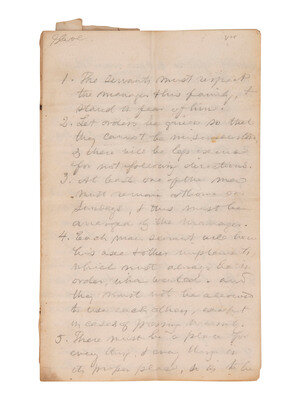 1. The servants must respect
the manager & his family, &
stand in fear of him.
2. Let orders be given so that
they cannot be misunderstood
& there will be less excuse
for not following directions.
3. At least one of the men
must remain at home on
Sundays, & this must be
arranged by the manager.
4. Each man servant will have
his axe & other implements
which must always be in
order, when wanted. and
they must not be allowed
to use each others, except
in cases of pressing
5. There must be a place for
every thing, & every thing in
its proper place, so as to be